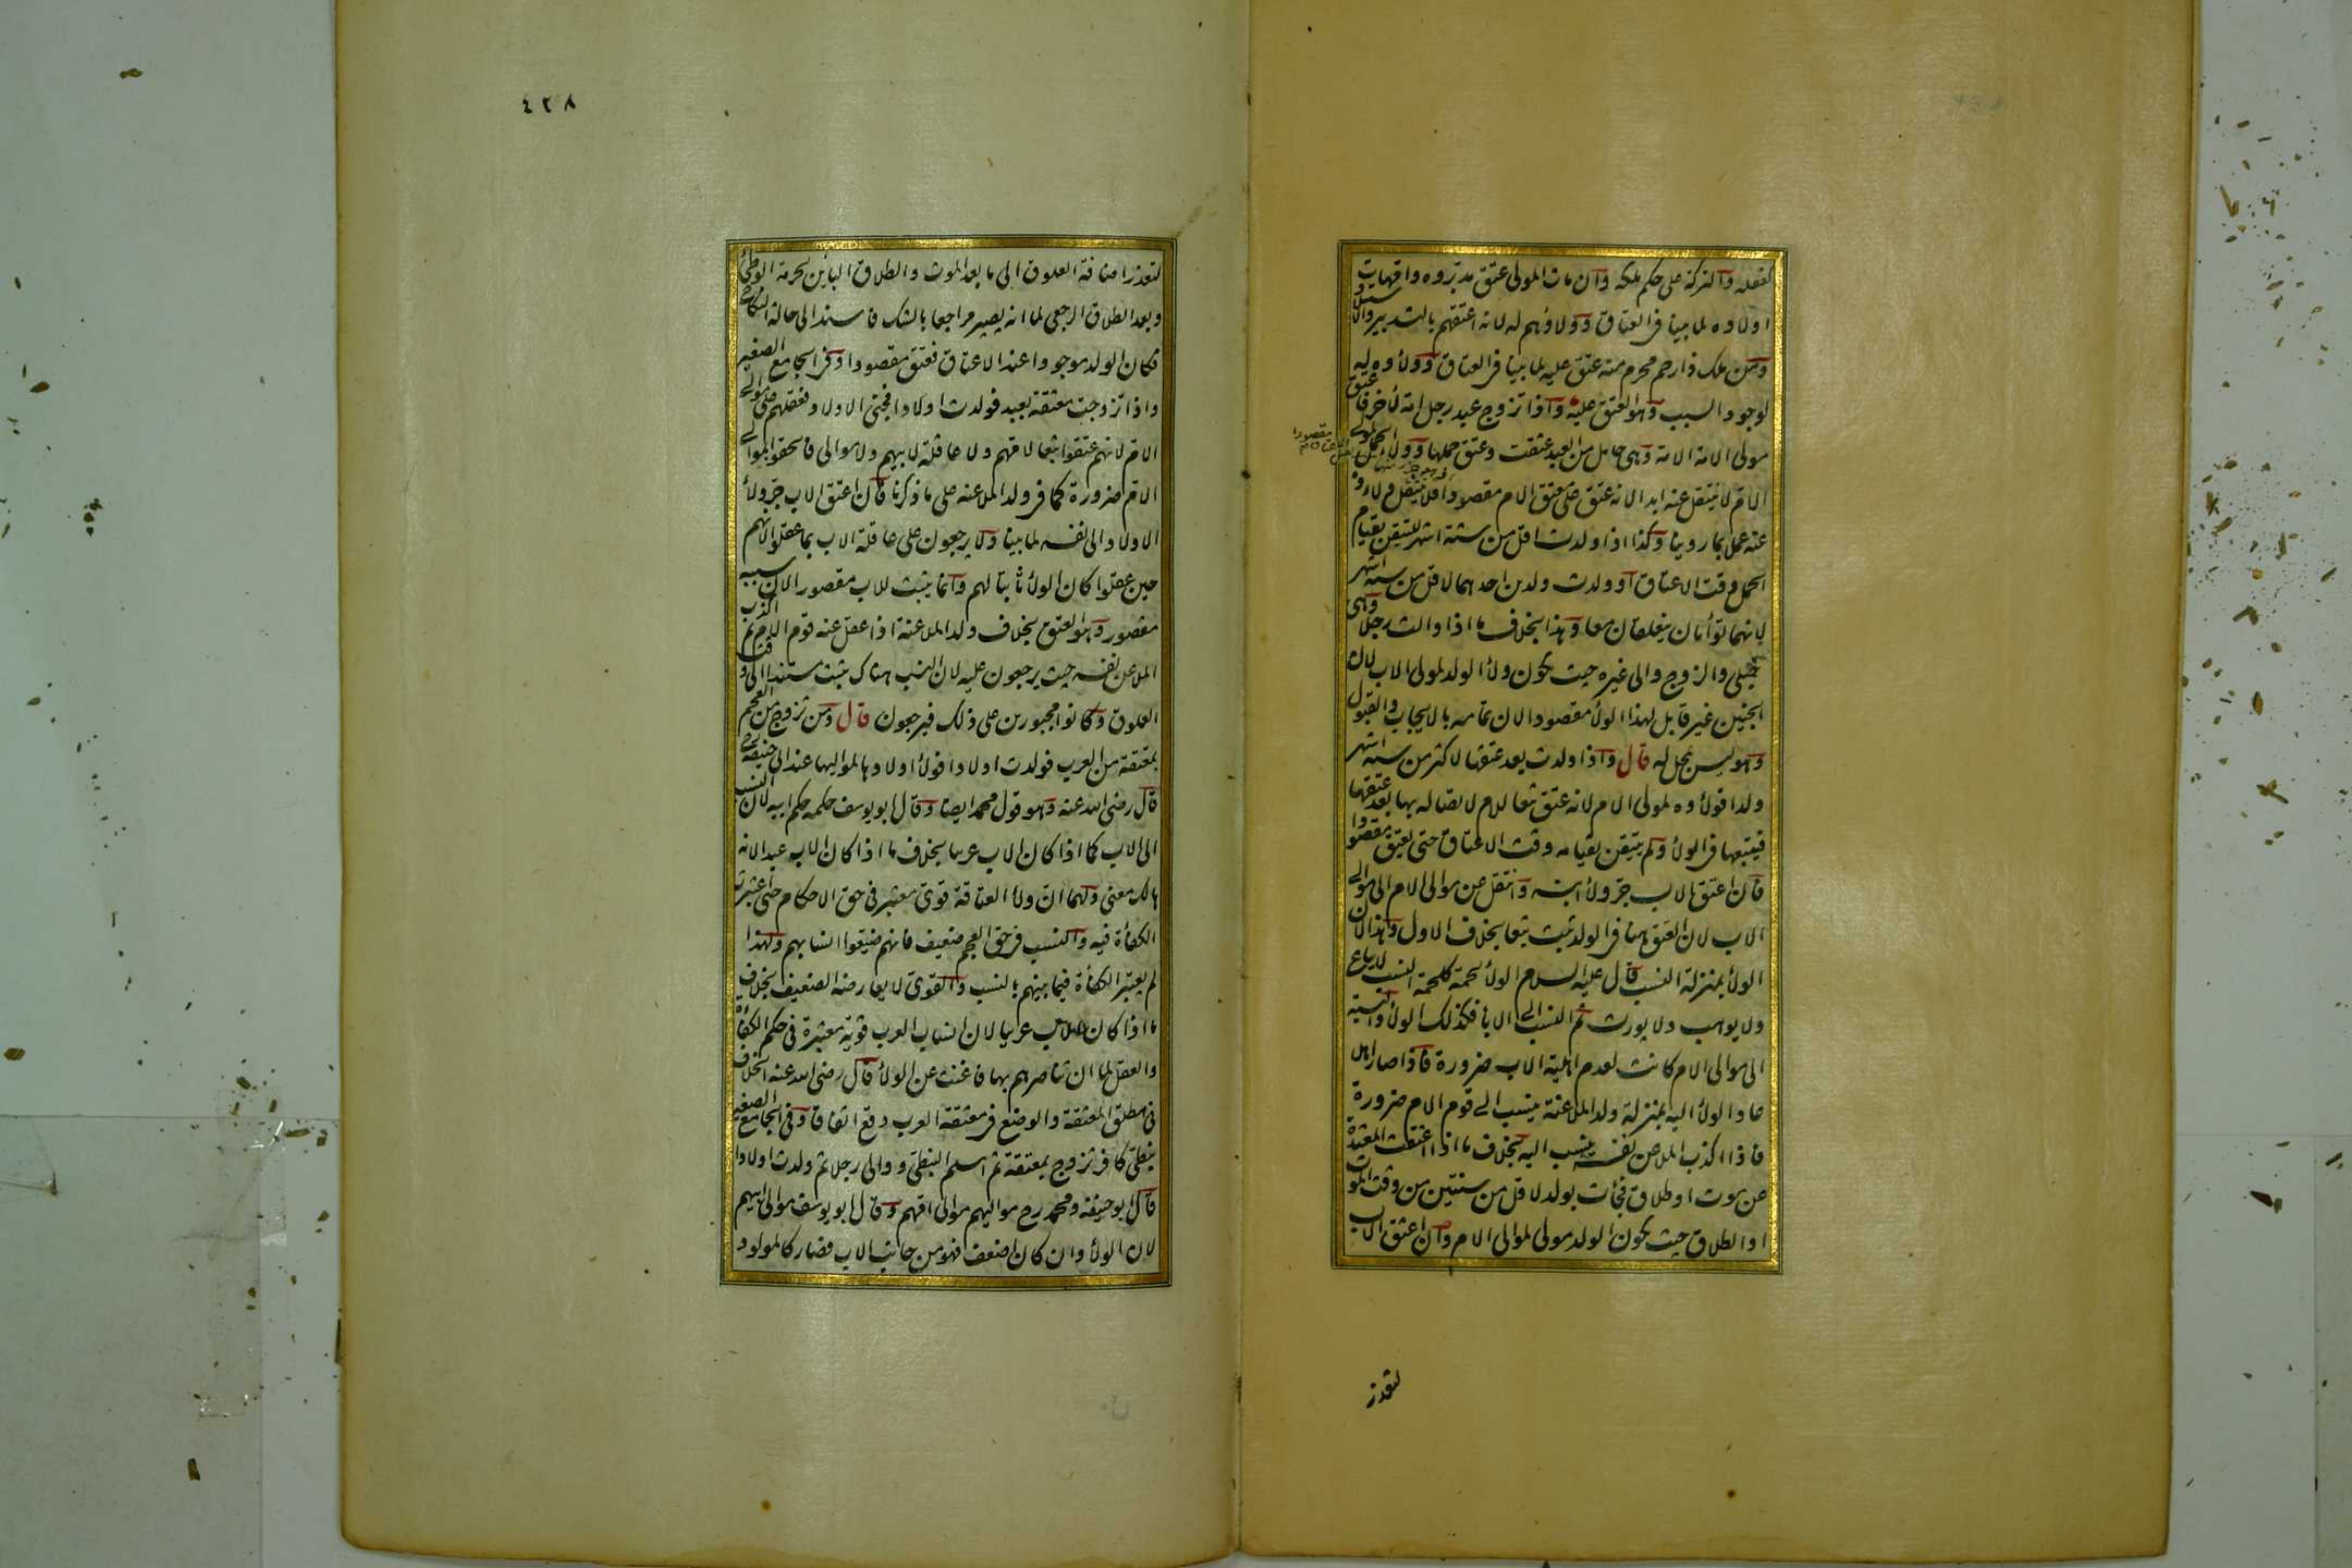 كفعله والتركة على حكم ملكه وان مات المولى عتق مدبروه وامهات
اولاده لما بينا فى العتاق وولاؤهم له لانه اعتقهم بالتدبير والاستيلاد
ومن ملك ذا رحم محرم منه عتق عليه لما بينا فى العتاق وولاؤه له
لوجود السبب وهو العتق عليه واذا تزوج عبد رجل امة لآخر فاعتق
مولى الامة الامة وهى حامل من العبد عتقت وعتق حملها وولاء الحمل لمولى
الام لا ينتقل عنه ابدا لانه عتق على معتق الام مقصودا فلا ينتقل ولاؤه
عنه عملا بما روينا وكذا اذا ولدت لاقل من ستة اشهر للتيقن بقيام
الحمل وقت الاعتاق او ولدت ولدين احدهما لاقل من ستة اشهر
لانهما توأمان يتعلقان معا وهذا بخلاف ما اذا والت رجلا وهى
حبلى والزوج والى غيره حيث يكون ولاء الولد لمولى الاب لان
الجنين غير قابل لهذا الولاء مقصودا لان تمامه بالايجاب والقبول
وهو ليس بمحل له قال واذا ولدت بعد عتقها لاكثر من ستة اشهر
ولدا فولاؤه لمولى الام لانه عتق تبعا للام لاتصاله بها بعد عتقها
فيتبعها فى الولاء ولم يتيقن بقيامه وقت الاعتاق حتى يعتق مقصودا
فان اعتق الاب جر ولاء ابنه وانتقل عن موالى الام الى موالى
الاب لان العتق ههنا فى الولد ثبت تبعا بخلاف الاول وهذا لان
الولاء بمنزلة النسب قال عليه السلام الولاء لحمة كلحمة النسب لا يباع
ولا يوهب ولا يورث ثم النسب الى الاباء فكذلك الولاء والنسبة
الى موالى الام كانت لعدم اهلية الاب ضرورة فاذا صار اهلا
عاد الولاء اليه بمنزلة ولد الملاعنة ينسب الى قوم الام ضرورة
فاذا اكذب الملاعن نفسه ينسب اليه بخلاف ما اذا اعتقت المعتدة
عن موت او طلاق فجأت بولد لاقل من سنتين من وقت الموت
او الطلاق حيث يكون الولد مولى لموالى الام وان اعتق الاب
لتعذر
٤٢٨
لتعذر اضافة العلوق الى ما بعد الموت والطلاق البائن لحرمة الوطئ
وبعد الطلاق الرجعى لما انه يصير مراجعا بالشك فاسند الى حالة النكاح
فكان الولد موجودا عند الاعتاق فعتق مقصودا وفى الجامع الصغير
واذا تزوجت معتقة بعبد فولدت اولادا فجنى الاولاد فعقلهم على موالى
الام لانهم عتقوا تبعا لامهم ولا عاقلة لابيهم ولا موالى فالحقوا بموالى
الام ضرورة كما فى ولد الملاعنة على ما ذكرنا فان اعتق الاب جر ولاء
الاولاد الى نفسه لما بينا ولا يرجعون على عاقلة الاب بما عقلوا لانهم
حين عقلوا كان الولاء ثابتا لهم وانما يثبت للاب مقصورا لان سببه
مقصور وهو العتق بخلاف ولد الملاعنة اذا عقل عنه قوم الام ثم اكذب
الملاعن نفسه حيث يرجعون عليه لان النسب هناك يثبت مستندا الى وقت
العلوق وكانوا مجبورين على ذلك فيرجعون قال ومن تزوج من العجم
بمعتقة من العرب فولدت اولادا فولاء اولادها لمواليها عند ابى حنيفة رح
قال رضى الله عنه وهو قول محمد ايضا وقال ابو يوسف حكمه حكم ابيه لان النسب
الى الاب كما اذا كان الاب عربيا بخلاف ما اذا كان الاب عبدا لانه
هالك معنى ولهما ان ولاء العتاقة قوى معتبر فى حق الاحكام حتى اعتبرت
الكفاءة فيه والنسب فى حق العجم ضعيف فانهم ضيعوا انسابهم ولهذا
لم يعتبر الكفاءة فيما بينهم بالنسب والقوى لا يعارضه الضعيف بخلاف
ما اذا كان الاب عربيا لان انساب العرب قوية معتبرة فى حكم الكفاءة
والعقل لما ان تناصرهم بها فاغنت عن الولاء قال رضى الله عنه الخلاف
فى مطلق المعتقة والوضع فى معتقة العرب وقع اتفاقا وفى الجامع الصغير
نبطى كافر تزوج بمعتقة ثم اسلم النبطى ووالى رجلا ثم ولدت اولادا
قال ابو حنيفة ومحمد رح مواليهم موالى امهم وقال ابو يوسف موالى ابيهم
لان الولاء وان كان اضعف فهو من جانب الاب فصار كالمولود